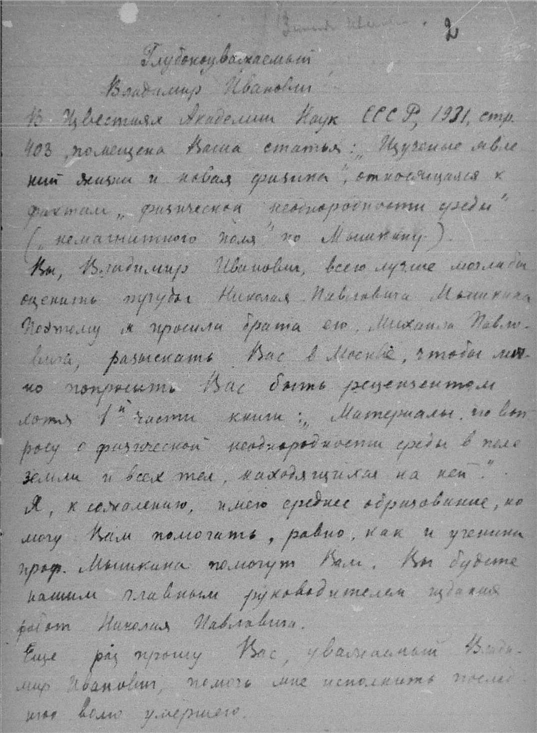 2
Глубокоуважаемый
Владимир Иванович
В Известиях Академии Наук СССР, 1931, стр.
403, помещена Ваша статья: „Изучение явле
ний жизни и новая физика", относящаяся к
фактам „физической неоднородности среды"
(„немагнитного поля" по Мышкину).
Вы, Владимир Иванович, всего лучше могли бы
оценить труды Николая Павловича Мышкина
Поэтому я просила брата его, Михаила Павло-
вича, разыскать Вас в Москве, чтобы лич-
но попросить Вас быть рецензентом
хотя 1й части книги: „Материалы по воп
росу о физической неоднородности среды в поле
земли и всех тел, находящихся на ней."
Я, к сожалению, имею среднее образование, но
могу Вам помогать, равно, как и ученики
проф. Мышкина помогут Вам. Вы будете
нашим главным руководителем издания
работ Николая Павловича.
Еще раз прошу Вас, уважаемый Влади-
мир Иванович, помочь мне исполнить послед-
нюю волю умершего.